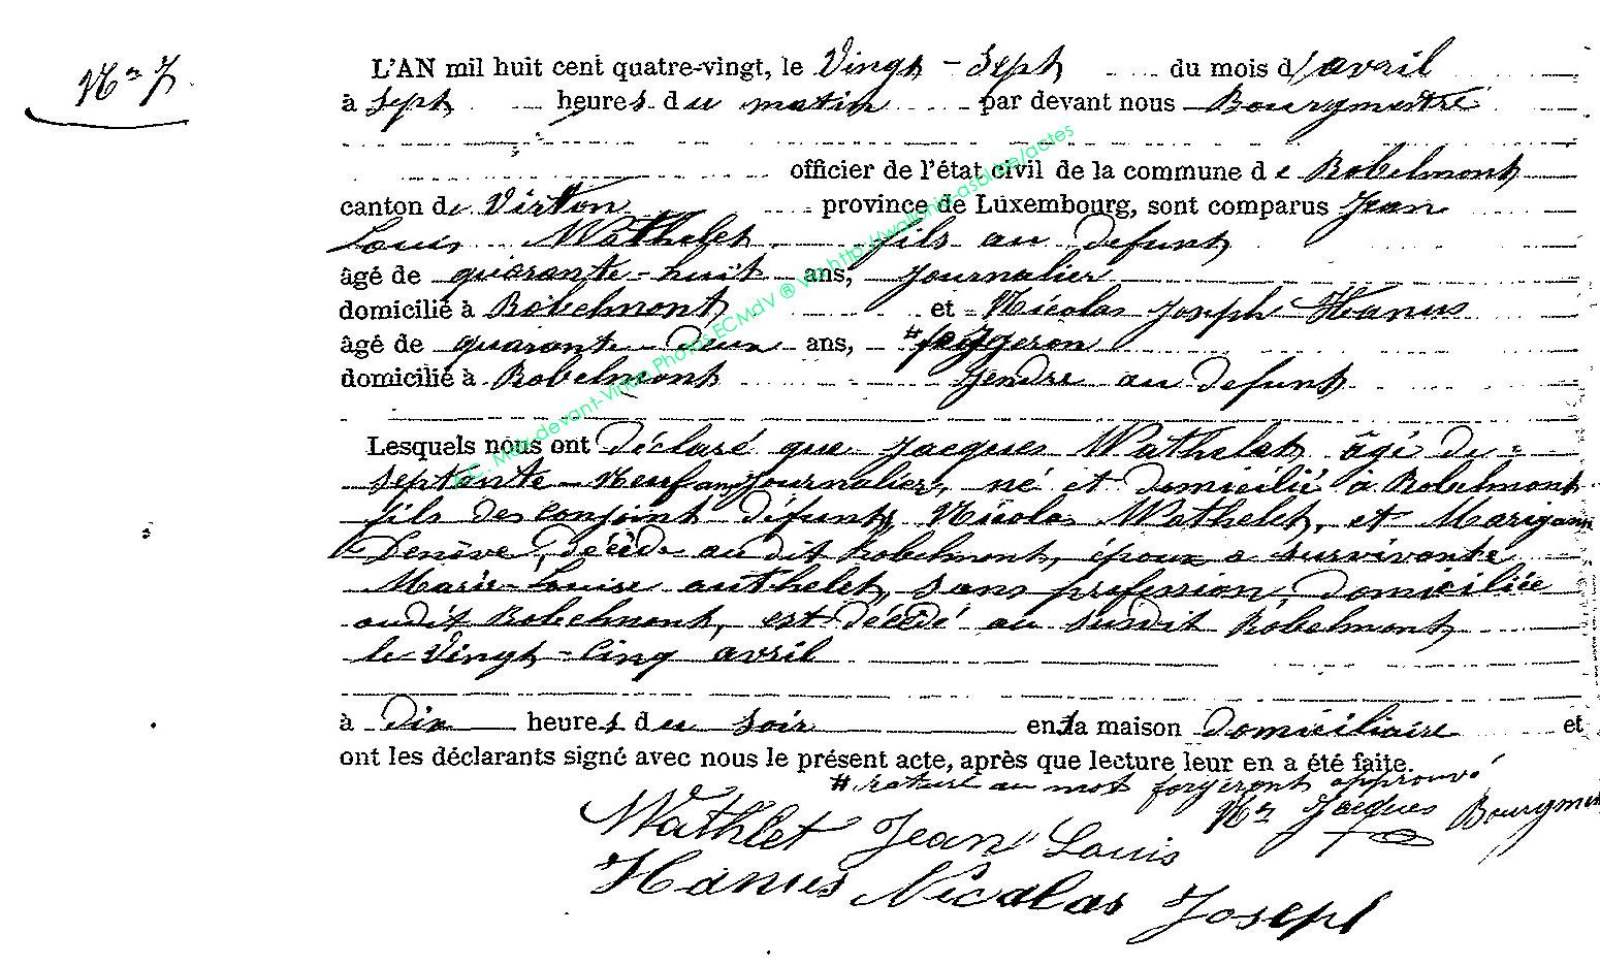 N° 7
L'AN mil huit cent quatre-vingt, le Vingt-Sept du mois d'avril
à sept heures du matin par devant nous Bourgmestre
officier de l'état civil de la commune de Robelmont
canton de Virton province de Luxembourg, sont comparus Jean
Louis Wathelet fils au defunt
âgé de quarante-huit ans, journalier
domicilié à Robelmont et Nicolas Joseph Hanus
âgé de quarante-Deux ans, # forgeron
domicilié à Robelmont gendre au defunt
Lesquels nous ont Déclaré que Jacques Wathelet âgé de
septante-Neuf ans Journalier, né et domicilié à Robelmont
fils des conjoint défunts, Nicolas Wathelet, et Marigann
Denève, décédé au dit Robelmont, époux a survivante
Marie-Louise authelet, sans profession, Domiciliée
audit Robelmont, est décédé au susdit Robelmont
le Vingt-Cinq avril
à Dix heures du soir en la maison Domiciliaire et
ont les déclarants signé avec nous le présent acte, après que lecture leur en a été faite.
# rature au mot forgeront approuvé
Wathlet Jean Louis Jacques Bourgmes
Hanus Nicolas Joseph
devant-Virton Photos ECMdV ® via http://wallonia-asbl.be/actes